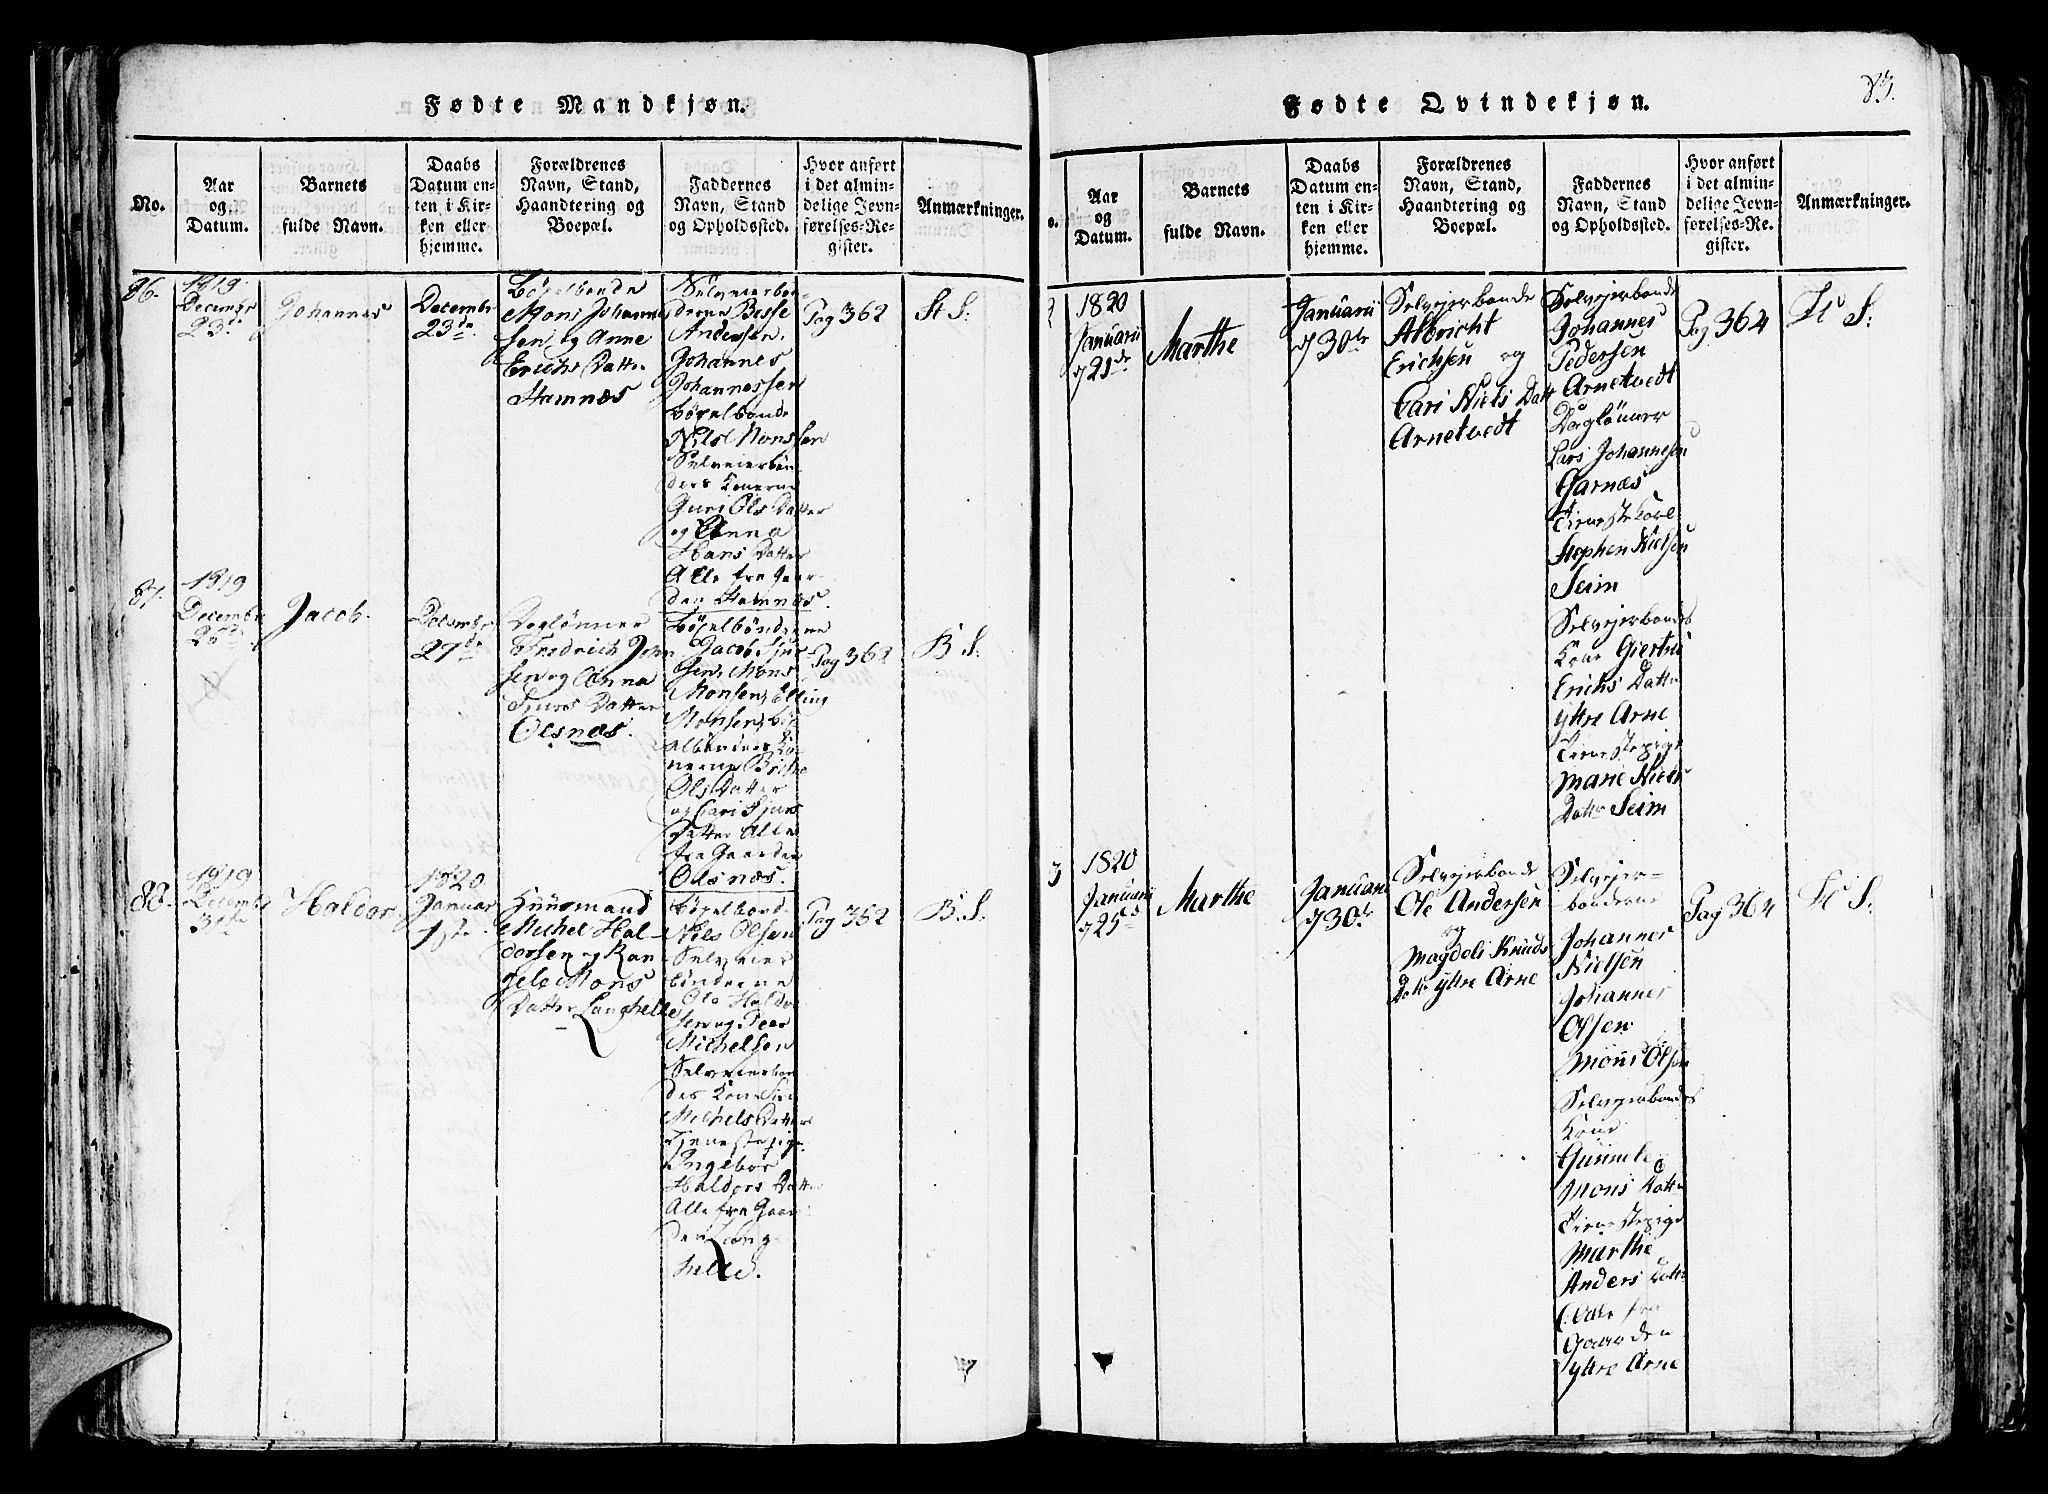 Fødte Mandkjøn.
No.
Aar
og
Datum.
Barnets
fulde Navn.
Daabs
Datum en-
ten i Kir-
ken eller
hjemme.
Forældrenes
Navn, Stand,
Haandtering og
Boepæl.
Faddernes
Navn, Stand
og Opholdssted.
Hvor anført
i det almin-
delige Jevn-
førelses-Re-
gister.
Anmærkninger.
86.
1819
Decembr
23de
Johannes
Decembr
23de
Böxelbonde
Mons Johanne
sen og Anne
Erichs Datter
Hamnæs
Selveierbøn-
derne Besse
Andersen,
Johannes
Johannessen
Böxelbonde
Nils Monssen
Selveierbøn-
ders Konerne
Guri Ols Datter
og Anna
Hans Datter
Alle fra Gaar-
den Hamnæs.
Pag 362
St S:
87.
1819
Decembr
Jacob.
Decembr
27de
Daglönner
Fredrich John
sen og Anna
Sjurs Datter
Olsnæs.
Böxelbönderne
Jacob Sjur
sen, Mons
Monsen, Elling
Monsen, Böx
elbönders Ko-
nerne Brithe
Ols Datter
og Cari Sjurs
Datter Alle
fra Gaarden
Olsnæs.
Pag 362
B. S:
88.
1819
Decembr
31te
Haldor
1820
Januar
1ste
Huusmand
Michel Hal-
dorsen og Ran-
gele Mons
Datter Langhelle
Böxelbond-
Nils Olsen
Selveier
bönderne
Ole Haldor
sen og Peer
Michelsen
Selveierbon
des Kone Siri
Michels Datter
Tjenestepige
Ingebor
Haldors Datter
Alle fra Gaar
den Lang-
helle.
Pag 362
B. S:
Fødte Qvindekjøn.
83.
o.
Aar
og
Datum.
Barnets
fulde Navn.
Daabs
Datum en-
ten i Kir-
ken eller
hjemme.
Forældrenes
Navn, Stand,
Haandtering og
Boepæl.
Faddernes
Navn, Stand
og Opholdssted.
Hvor anført
i det almin-
delige Jevn-
førelses-Re-
gister.
Anmærkninger.
2
1820
Januarii
Marthe
Januarii
Selvejerbonde
Albricht
Erichsen og
Cari Niels Datt
Arnetvedt
Selvejerbonde
Johannes
Pedersen
Arnetvedt
Daglönner
Lars Johannesen
Garnæs
Tienestekarl
Stephen Nielsen
Seim
Selvejerbondes
Kone Giertrü
Erichs Datter
yttre Arne
Tienestepige
Marie Niels
Datter Seim
Pag 364
H S:
3
1820
Januarii
Marthe
Januarii
Selvejerbonde
Ole Andersen
og
Magdeli Knuds
Datter yttre Arne
Selvejer-
bönderne
Johannes
Nielsen
Johannes
Olsen
Mons Olsen
Selvejerbondes
Kone
Gunnele
Mons Datter
Tienestepige
Marthe
Anders Datt
Alle fra
Gaarden
yttre Arne
Pag 364
H S: